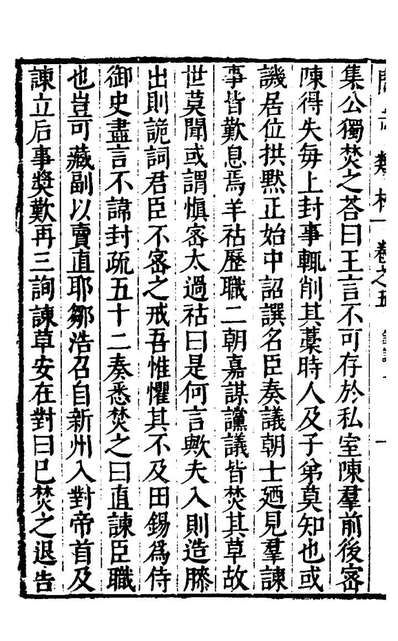 集公獨焚之荅曰王言不可存於私室陳羣前後宻
陳得失每上封事輒削其藳時人及子弟莫知也或
譏居位拱黙正始中詔譔名臣奏議朝士廼見羣諫
事皆歎息焉羊祜歷職二朝嘉謀讜議皆焚其草故
世莫聞或謂慎宻太過祜曰是何言歟夫入則造膝
出則詭詞君臣不宻之戒吾惟懼其不及田錫為侍
御史盡言不諱封疏五十二奏悉焚之曰直諫臣職
也豈可藏副以賣直耶鄒浩召自新州入對帝首及
諫立后事奬歎再三詢諫草安在對曰巳焚之退告